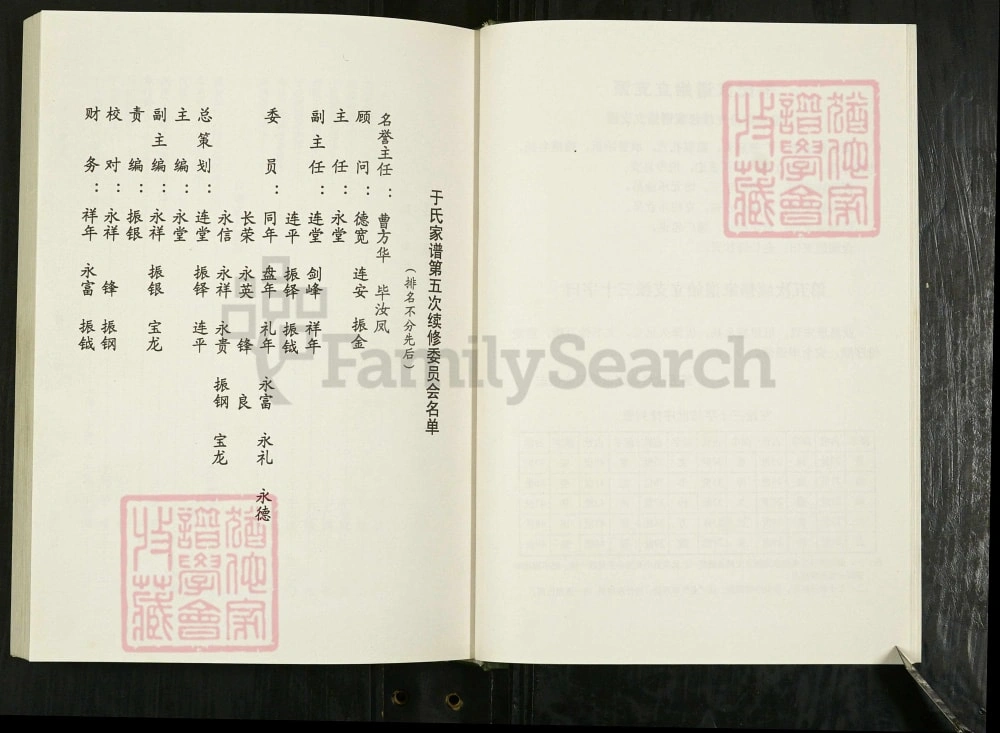 于氏家谱第五次续修委员会名单
（排名不分先后）
名誉主任：曹方华 毕汝凤
顾问：德宽 连安 振金
主任：永堂
副主任：连堂 剑峰 祥年
连平 振铎 振钺
委员：同年 盘年 礼年 永富 永礼 永德
长荣 永英 锋 良
永信 永祥 永贵 振钢 宝龙
总策划：连堂 振铎 连平
主编：永堂
副主编：永祥 振银 宝龙
责编：振银
校对：永祥 锋 振钢
财务：祥年 永富 振钺
FamilySearch
猶他家
譜學會
收藏
猶他家
譜學會
收藏